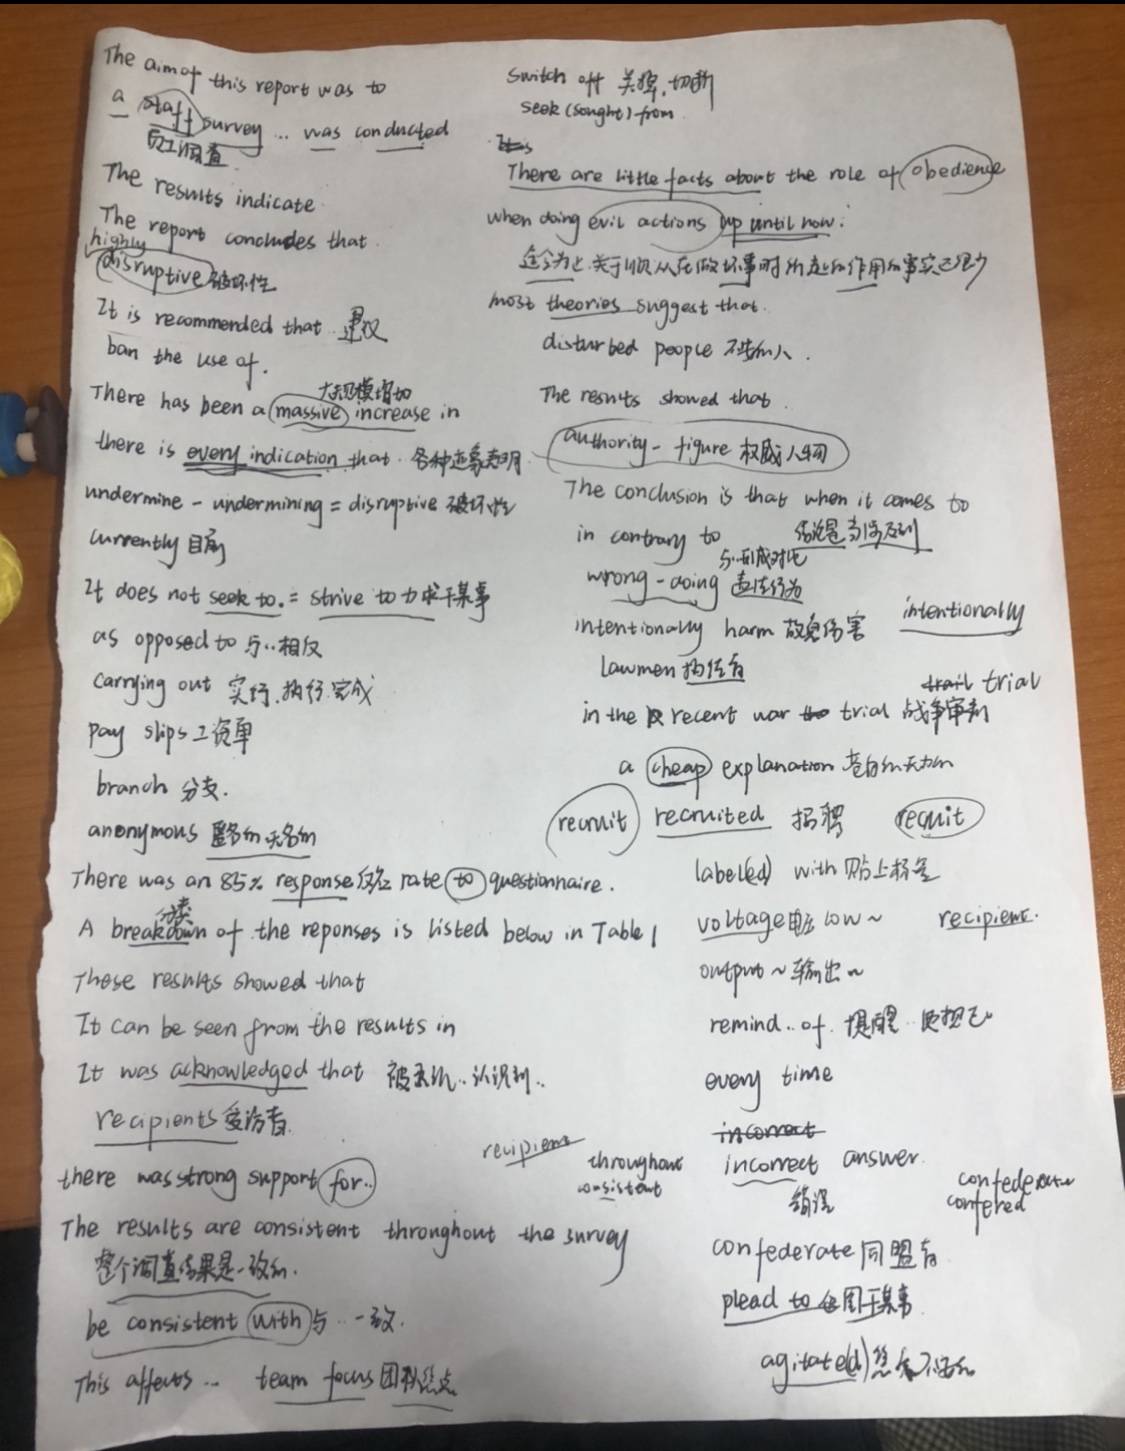 The aim of this report was to
a staff survey ... was conducted
员工调查
The results indicate
The report concludes that
highly
disruptive 破坏性
It is recommended that .. 建议
ban the use of.
大规模增加
There has been a massive increase in
there is every indication that . 各种迹象表明
undermine - undermining = disruptive 破坏性
currently 目前
It does not seek to. = strive to 力求干某事
as opposed to 与..相反
carrying out 实行.执行.完成
pay slips 工资单
branch 分支.
anonymous 匿名的 无名的
There was an 85% response 反应 rate to questionnaire.
分类
A breakdown of the reponses is listed below in Table 1
These results showed that
It can be seen from the results in
It was acknowledged that 被承认..认识到..
recipients 受访者.
recipient
there was strong support for..
throughout
consistent
The results are consistent throughout the survey
整个调查结果是一致的.
be consistent with 与 .. 一致.
This affects ... team focus 团队焦点
switch off 关掉.切断
seek (sought) from
There are little facts about the role of obedience
when doing evil actions up until now.
迄今为止.关于服从在做坏事时所起的作用的事实还很少
most theories suggest that.
disturbed people
The results showed that .
authority - figure 权威人物
The conclusion is that when it comes to
结论是当涉及到
in contrary to
与..形成对比
wrong - doing 违法行为
intentionally harm 故意伤害 intentionally
lawmen 执法者
trail trial
in the recent war trial 战争审判
a cheap explanation 苍白的无力的
recruit recruited 招聘 recruit
label(ed) with 贴上标签
voltage 电压 low ~ recipient.
output ~ 输出 ~
remind .. of. 提醒 ..
every time
incorrect
incorrect answer.
错误
confederate
confered
confederate 同盟者
plead to
agitate(d)